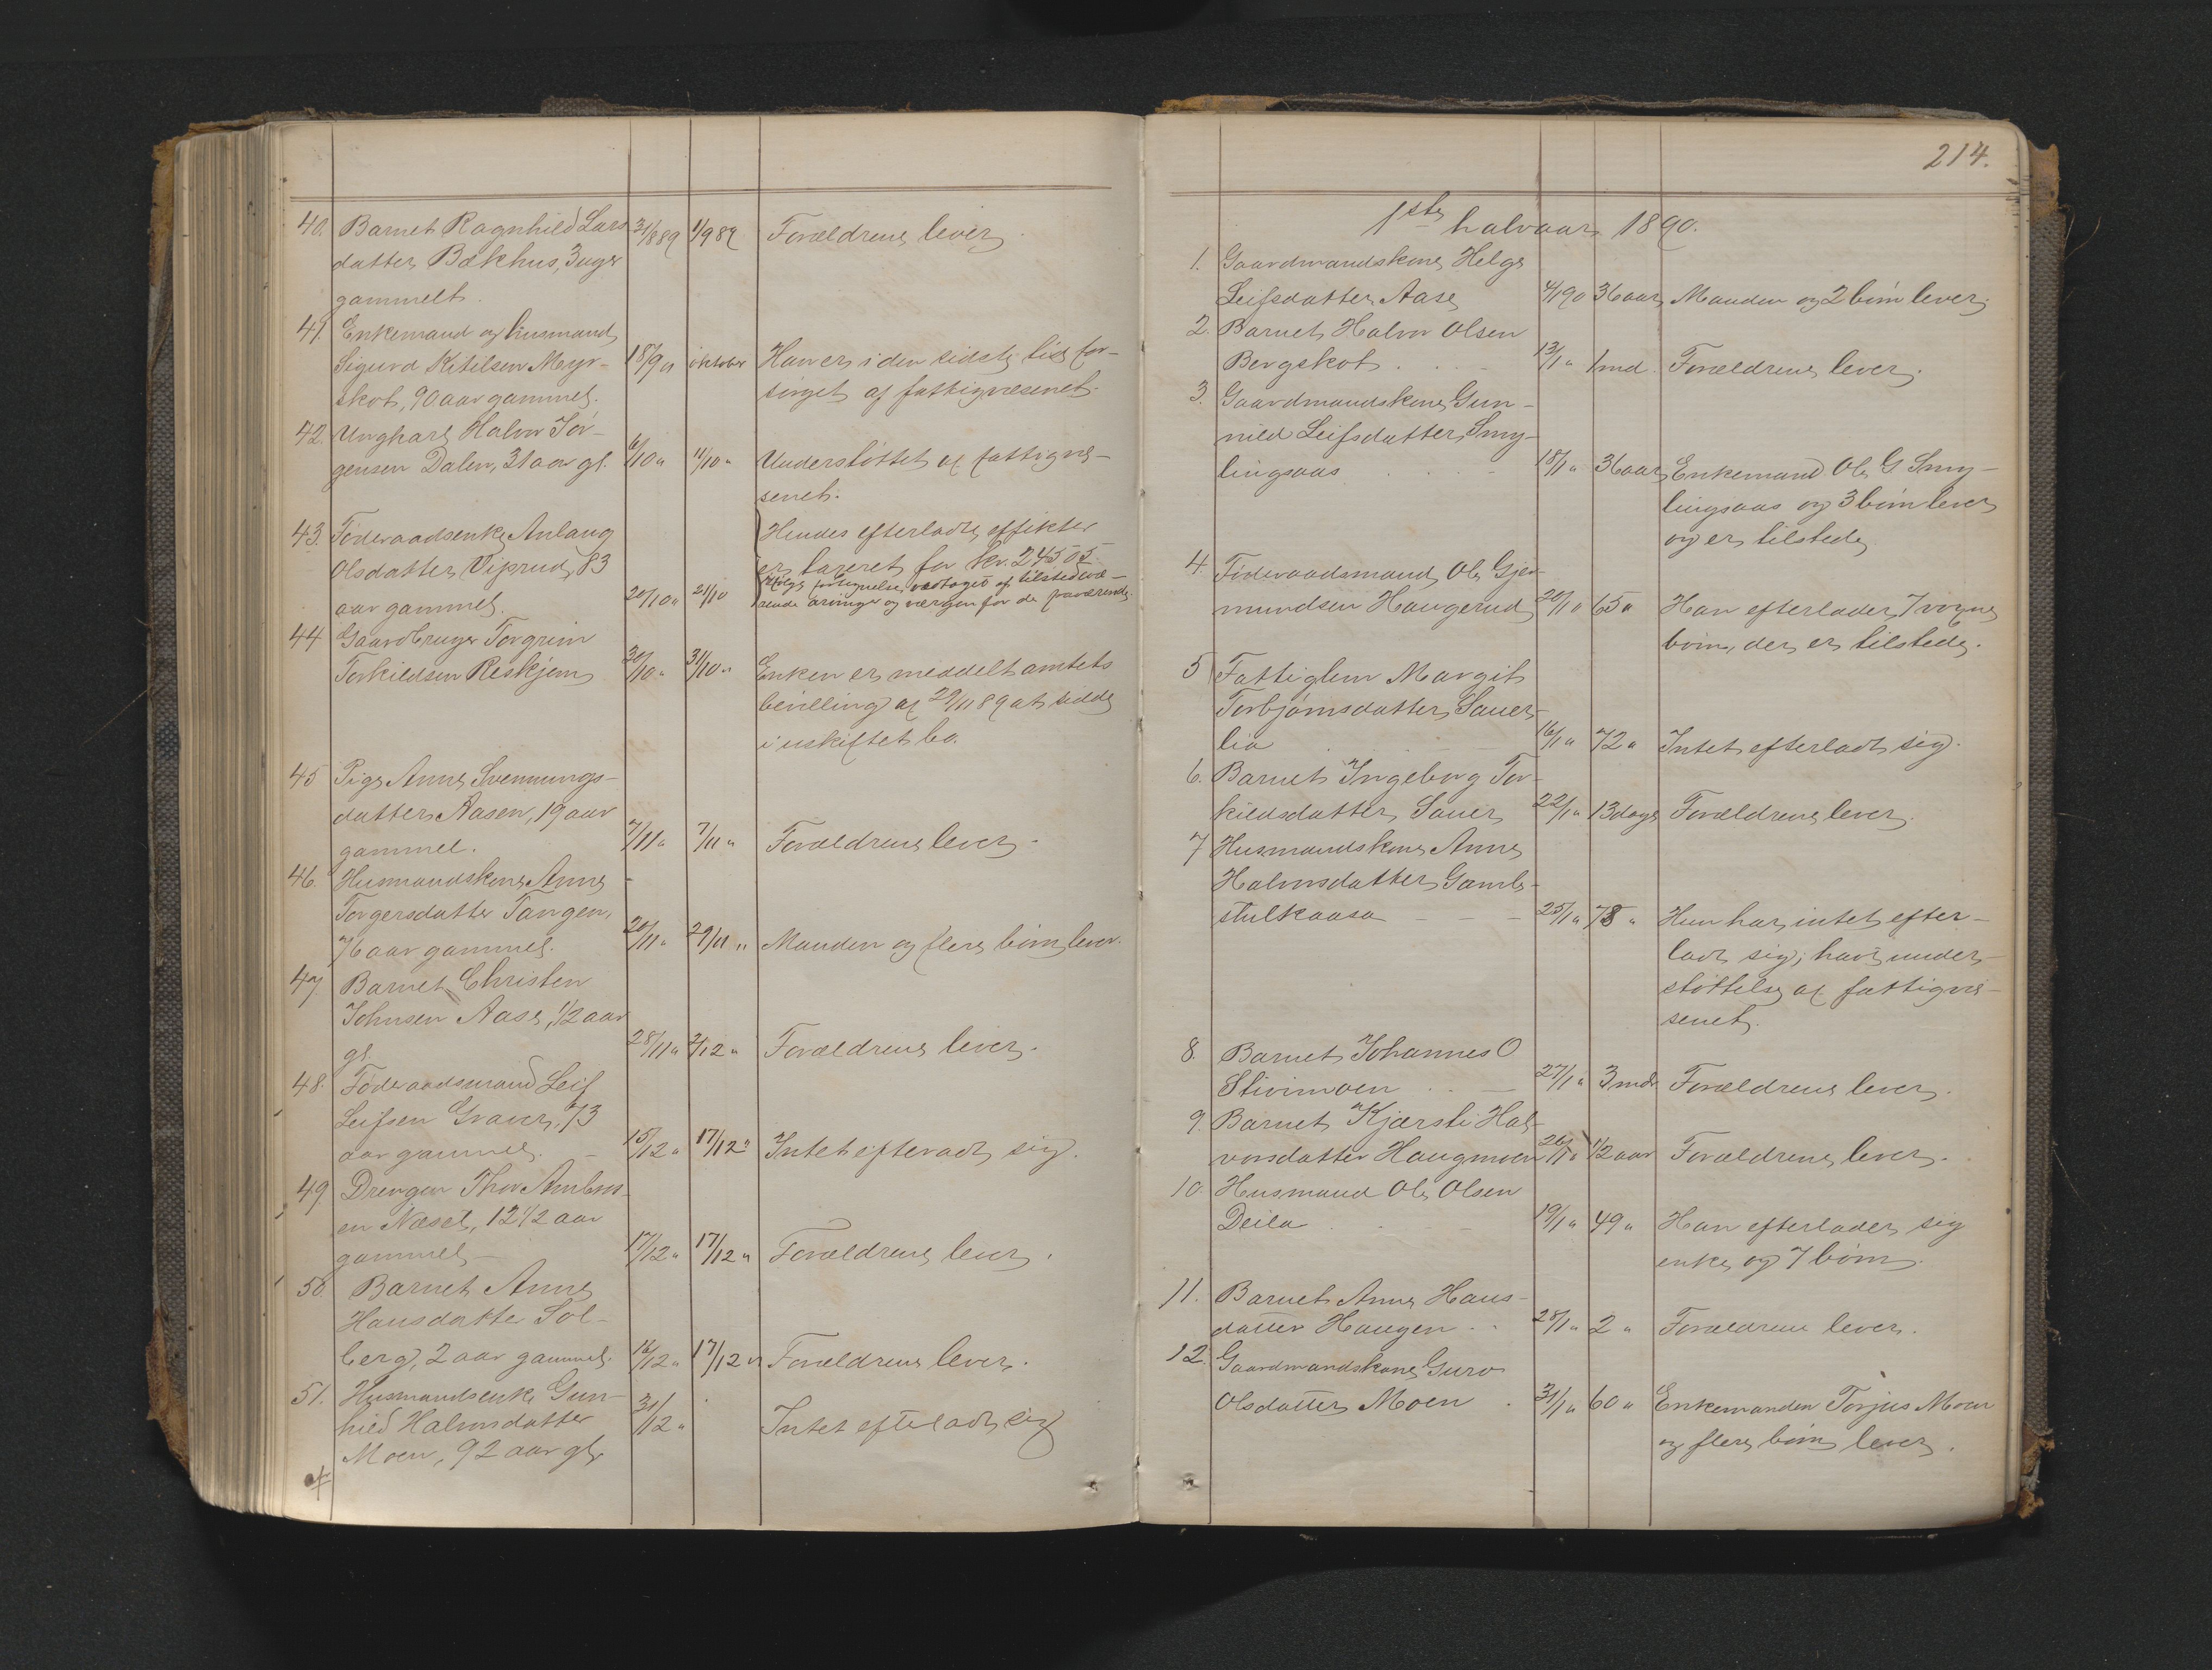 40. Barnet Ragnhild Lars 31/8 89 1/9 89 Forældrene lever.
datter Bakhus, 3 uger
gammelt.
41. Enkemand og husmand
Sigurd Kitilsen Myr- 18/9 " oktober Han er i den sidste tid for-
skot, 90 aar gammel. sørget af fattigvæsenet.
42. Ungkarl Halvor Jør-
gensen Dalen, 31 aar gl. 6/10 " 11/10 " Understøttet af fattigvæ-
senet.
43. Føderaadsenke Anlaug Hendes efterladte effekter
Olsdatter Viprud, 83 er taxeret for kr. 245.05.
aar gammel. 20/10 " 21/10 ifølge fortegnelse vedtaget af tilstedevæ-
rende arvinger og værgen for de fraværende.
44 Gaardbruger Torgrim
Torkildsen Riskjem 30/10 " 31/10 " Enken er meddelt amtets
bevilling af 29/11 89 at sidde
i uskiftet bo.
45 Pige Anne Svennungs-
datter Aasen, 19 aar
gammel. 7/11 " 7/11 " Forældrene lever.
46. Husmandskone Anne
Torgersdatter Tangen,
76 aar gammel. 20/11 " 29/11 " Manden og flere børn lever.
47. Barnet Christen
Johnsen Aase, 1/2 aar
gl. 28/11 " 2/12 " Forældrene lever.
48. Føderaadsmand Leif
Leifsen Graver, 73
aar gammel. 15/12 " 17/12 " Intet efterladt sig.
49 Drengen Thor Ambros
en Næset, 12 1/2 aar
gammel 17/12 " 17/12 " Forældrene lever.
50. Barnet Anne
Hansdatter Sol-
berg, 2 aar gammel. 16/12 " 17/12 " Forældrene lever.
51. Husmandsenke Gun-
hild Halvorsdatter 31/12 " Intet efterladt sig
Moen, 92 aar gl.
214.
1ste halvaar 1890.
1. Gaardmandskone Helge
Leifsdatter Aase 4/1 90 36 aar Manden og 2 børn lever.
2. Barnet Halvor Olsen
Bergskot 13/1 " 1 md. Forældrene lever.
3. Gaardmandskone Gun-
nild Leifsdatter Smy-
lingsaas 18/1 " 36 aar Enkemand Ole G. Smy-
lingsaas og 3 børn lever
og er tilstede
4. Føderaadsmand Ole Gjer-
mundsen Haugerud 20/1 " 65 " Han efterlader 7 voxne
børn, der er tilstede.
5 Fattiglem Margit
Torbjørnsdatter Sauer-
lia 16/1 " 72 " Intet efterladt sig.
6. Barnet Ingeborg Tor-
kildsdatter Sauer 22/1 " 13 dage Forældrene lever.
7 Husmandskone Anne
Halvorsdatter Gamle-
stulkaasa 25/1 " 78 " Hun har intet efter-
ladt sig; havt under-
støttelse af fattigvæ-
senet.
8. Barnet Johannes O
Stivimoen 27/1 " 3 mdr Forældrene lever.
9. Barnet Kjersti Hal-
vorsdatter Haugmoen 26/1 " 1/2 aar Forældrene lever.
10. Husmand Ole Olsen
Deila 19/1 " 49 " Han efterlader sig
enke og 7 børn.
11. Barnet Anne Hans-
datter Haugen 28/1 " 2 " Forældrene lever.
12. Gaardmandskone Guro
Olsdatter Moen 31/1 " 60 " Enkemanden Torjus Moen
og flere børn lever.